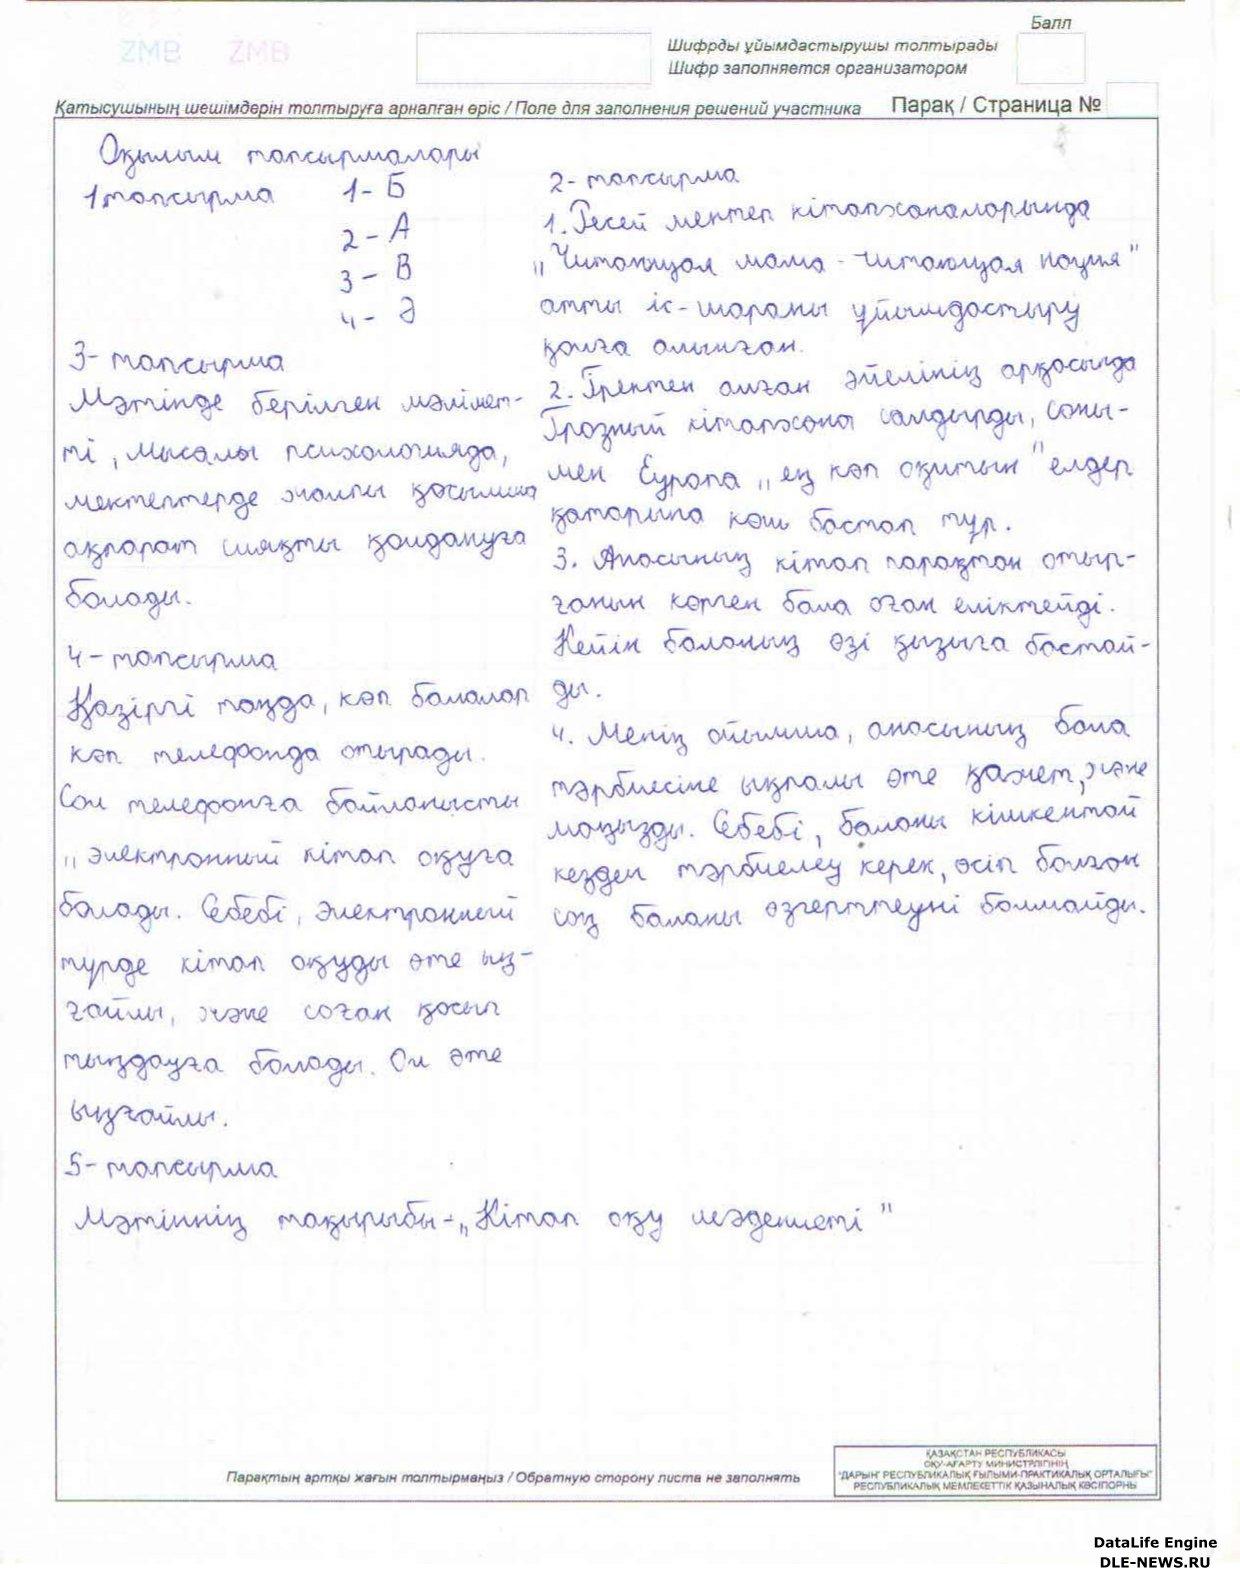 ZMB ZMB
Балл
Шифрды ұйымдастырушы толтырады
Шифр заполняется организатором
Қатысушының шешімдерін толтыруға арналған өріс / Поле для заполнения решений участника
Парақ / Страница №
Оқылым тапсырмалары
1 тапсырма
1- Б
2 - А
3 - В
4 - Ә
3- тапсырма
Мәтінде берілген мәлімет-
ті, мысалы психологияда,
мектептерде жалпы қосымша
ақпарат сияқты қолдануға
болады.
4 - тапсырма
Қазіргі таңда, көп балалар
көп телефонда отырады.
Сол телефонға байланысты
„электронный кітап оқуға
болады. Себебі, электронный
түрде кітап оқуды өте ың-
ғайлы, және соған қосып
тыңдауға болады. Ол өте
ыңғайлы.
2- тапсырма
1. Ресей мектеп кітапханаларында
„Читающая мама - читающая нация"
атты іс-шараны ұйымдастыру
қолға алынған.
2. Гректен алған әйелінің арқасында
Грозный кітапхана салдырды, соны-
мен Еуропа „ең көп оқитын" елдер
қатарына көш бастап тұр.
3. Анасының кітап парақтап отыр-
ғанын көрген бала оған еліктейді.
Кейін баланың өзі қызыға бастай-
ды.
4. Менің ойымша, анасының бала
тәрбиесіне ықпалы өте қажет, және
маңызды. Себебі, баланы кішкентай
кезден тәрбиелеу керек, өсіп болған
соң баланы өзгерттеуні болмайды.
5- тапсырма
Мәтіннің тақырыбы-„Кітап оқу мәдениеті"
Парақтың артқы жағын толтырмаңыз / Обратную сторону листа не заполнять
ҚАЗАҚСТАН РЕСПУБЛИКАСЫ
ОҚУ-АҒАРТУ МИНИСТРЛІГІНІҢ
"ДАРЫН" РЕСПУБЛИКАЛЫҚ ҒЫЛЫМИ-ПРАКТИКАЛЫҚ ОРТАЛЫҒЫ"
РЕСПУБЛИКАЛЫҚ МЕМЛЕКЕТТІК ҚАЗЫНАЛЫҚ КӘСІПОРНЫ
DataLife Engine
DLE-NEWS.RU